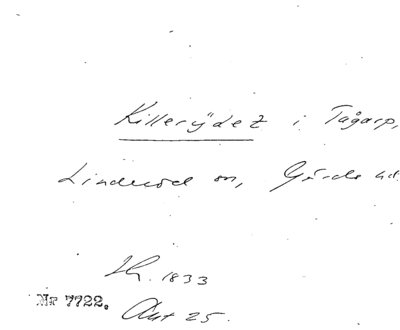 Killerydet i Tågarp,
Linderöd sn, Gärds hd.
Lh. 1833
Nr 7722. Akt 25.